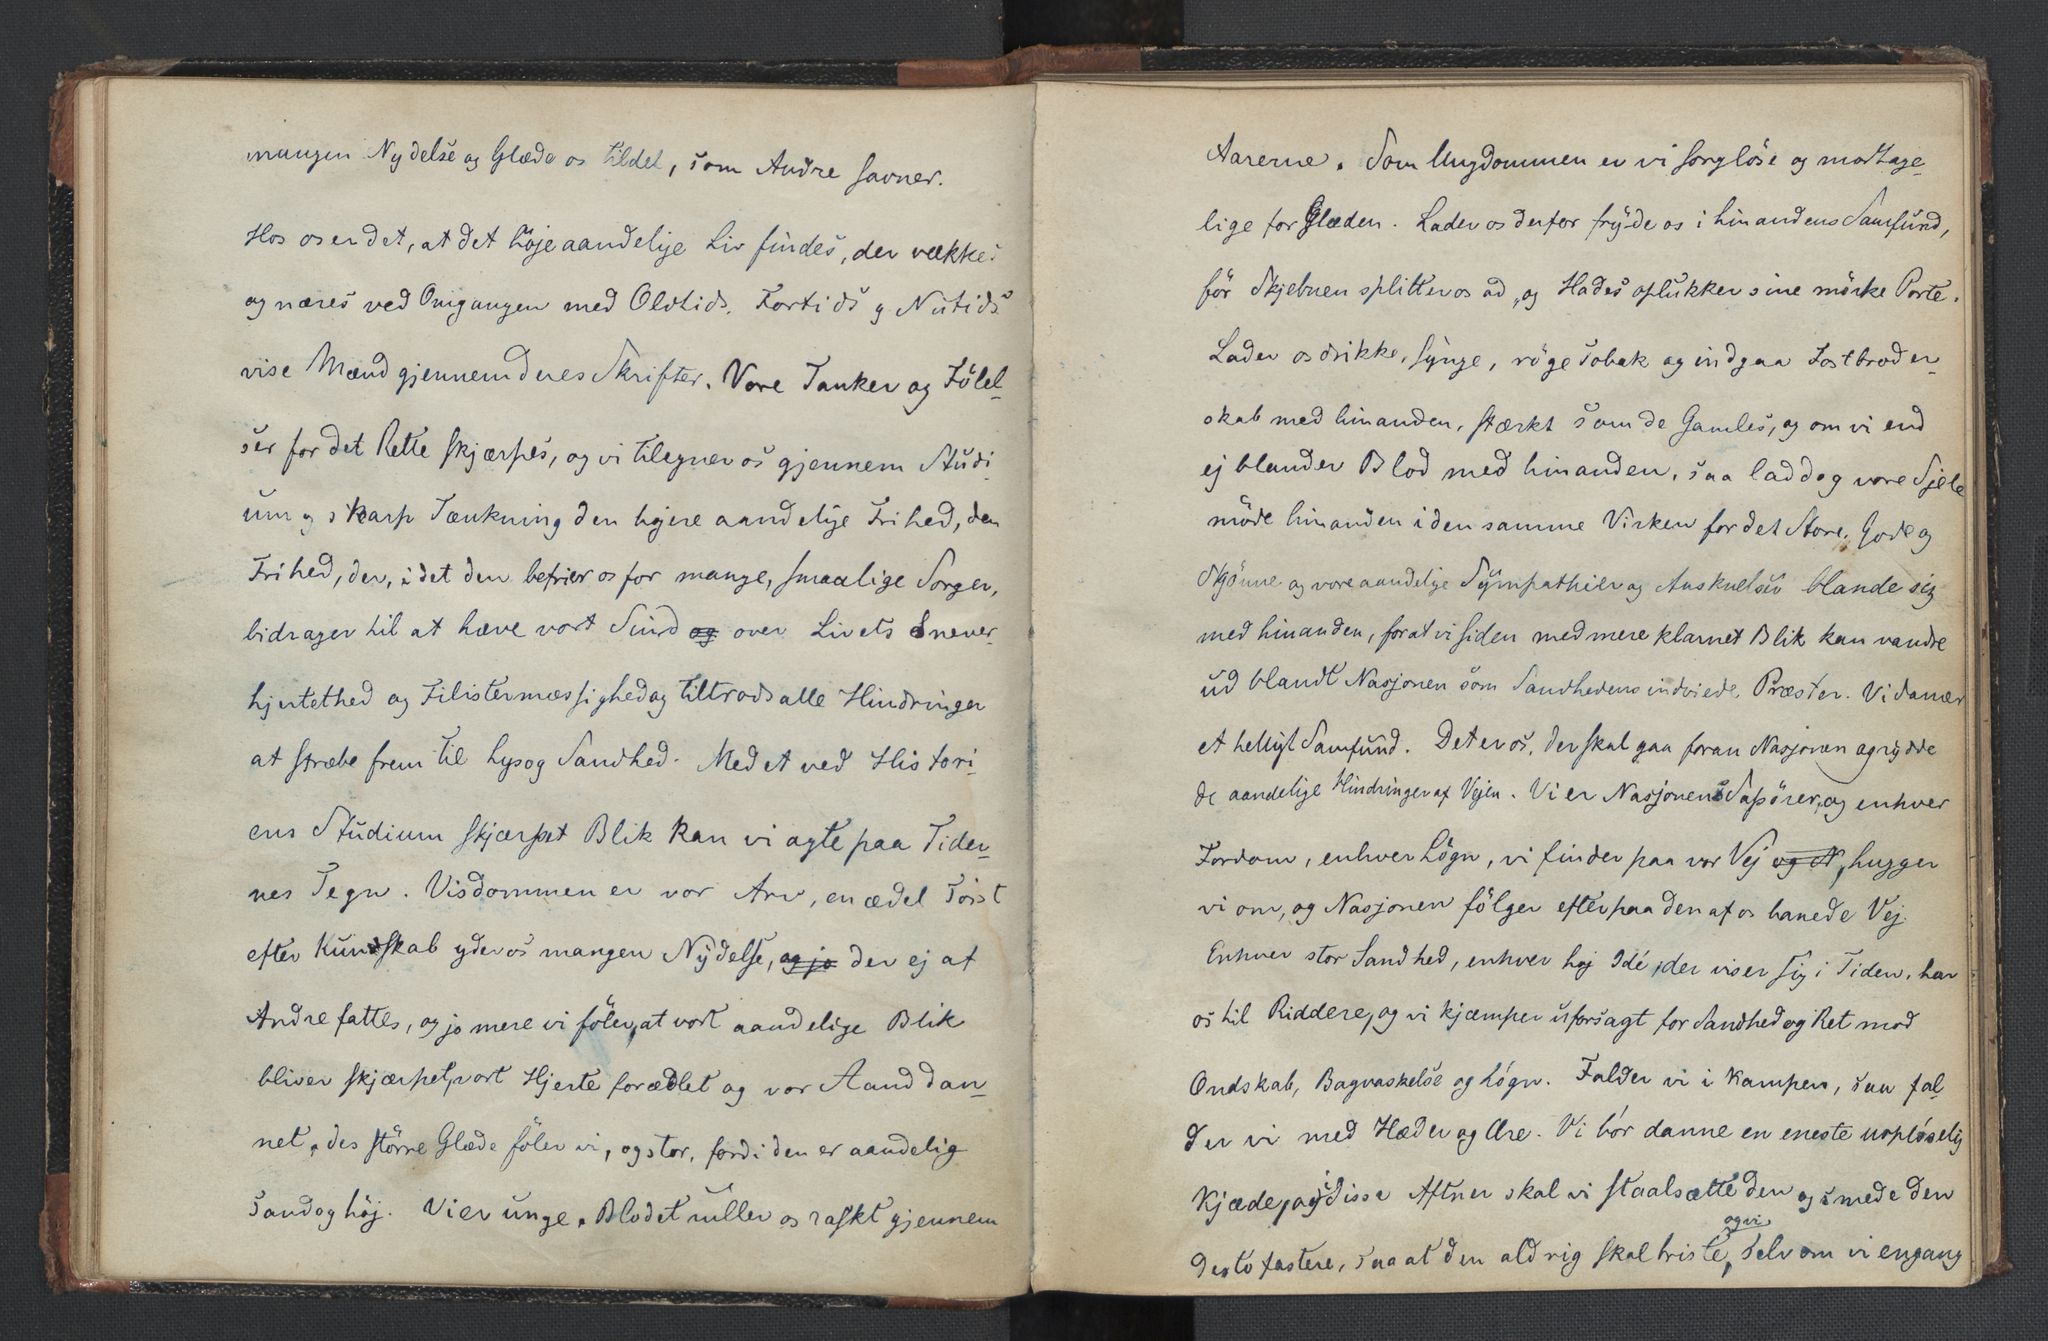 mangen Nydelse og Glæde os tildel, som Andre savner.
Hos os er det, at det höje aandelige Liv findes, der vækkes
og næres ved Omgangen med Oldtids, Fortids og Nutids
vise Mænd gjennem deres Skrifter. Vore Tanker og Fölel-
ser for det Rette skjærpes, og vi tilegner os gjennem Studi-
um og skarp Tænkning den højere aandelige Frihed, den
Frihed, der, idet den befrier os for mange, smaalige Sorger,
bidrager til at hæve vort Sind og over Livets Snever-
hjertethed og Filistermæssighed og tiltrods alle Hindringer
at stræbe frem til Lys og Sandhed. Med et ved Histori-
ens Studium skjærpet Blik kan vi agte paa Tider-
nes Tegn. Visdommen er vor Arv, en ædel Törst
efter Kundskab yder os mangen Nydelse, og jo der ej af
Andre fattes, og jo mere vi föler, at vort aandelige Blik
bliver skjærpet, vort Hjerte forædlet og vor Aand dan-
net, des större Glæde föler vi, og stor, fordi den er aandelig
sand og höj. Vi er unge, Blodet ruller os raskt gjennem
Aarerne. Som Ungdommen er vi sorglöse og modtage-
lige for Glæden. Lader os derfor fryde os i hinandens Samfund,
för Skjebnen splitter os ad, og Hades oplukker sine mörke Porte.
Lader os drikke, synge, röge Tobak og indgaa Fostbroder-
skab med hinanden, stærkt som de Gamles, og om vi end
ej blander Blod med hinanden, saa lad dog vore Sjele
möde hinanden i den samme Virken for det Store, Gode og
Skjönne og vore aandelige Sympathier og Anskuelser blande sig
med hinanden, forat vi siden med mere klarnet Blik kan vandre
ud blandt Nasjonen som Sandhedens indviede Præster. Vi danner
et helligt Samfund. Det er os, der skal gaa foran Nasjonen og rydde
de aandelige Hindringer af Vejen. Vi er Nasjonens Sapörer, og enhver
Fordom, enhver Lögn, vi finder paa vor Vej og N, hugger
vi om, og Nasjonen fölger efter paa den af os banede Vej.
Enhver stor Sandhed, enhver höj Idé, der viser sig i Tiden, har
os til Riddere, og vi kjæmper uforsagt for Sandhed og Ret mod
Ondskab, Bagvaskelse og Lógn. Falder vi i Kampen, saa fal-
der vi med Hæder og Ære. Vi bór danne en eneste uoplóselig
Kjæde, og i disse Aftner skal vi staalsætte den og smede den
og vi
desto fastere, saa at den aldrig skal briste, selv om vi engang